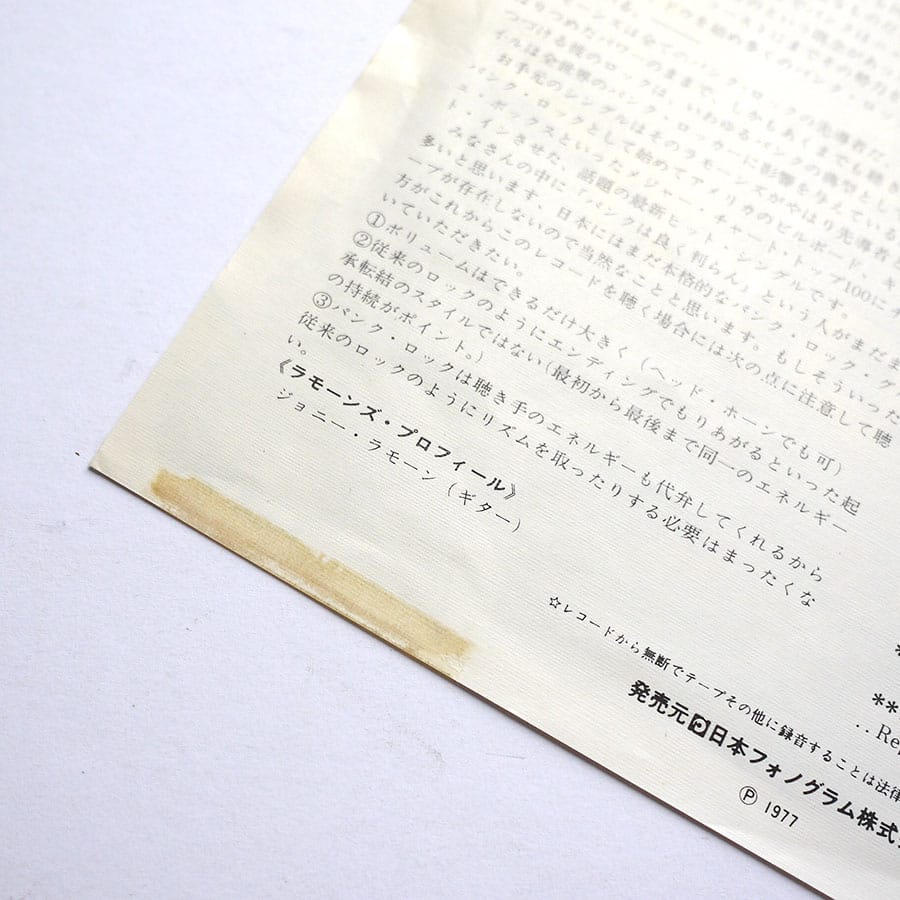 つづける彼のロックは、いわゆるパンクの典型として
イルは全機種のパンク・ロッカーに影響を与えている。
お手元のシングルはそのラモーンズがやはり先導者
パンク・ロックとして始めてアメリカのビルボード、キ
ュ・ボックスといったメジャー・チャートトップ100に
ト・インさせた、話題の最新ヒット・シングルです。
みなさんの中に「パンクは良く判らん」という人がまだま
多いと思います、日本にはまだ本格的なパンク・ロック・グ
ープが存在しないので当然なことと思います。もしそういった
方がこれからこのレコードを聴く場合には次の点に注意して聴
いていただきたい。
①ボリュームはできるだけ大きく(ヘッド・ホーンでも可)
②従来のロックのようにエンディングでもりあがるといった起
承転結のスタイルではない(最初から最後まで同一のエネルギー
の持続がポイント。)
③パンク・ロックは聴き手のエネルギーも代弁してくれるから
従来のロックのようにリズムを取ったりする必要はまったくな
い。
《ラモーンズ・プロフィール》
ジョニー・ラモーン(ギター)
☆レコードから無断でテープその他に録音することは法律
**
..Rep
発売元 日本フォノグラム株式
Ⓟ 1977